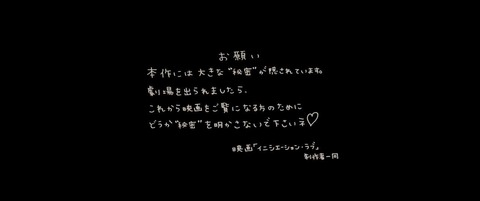 お願い
本作には大きな"秘密"が隠されています。
劇場を出られましたら、
これから映画をご覧になる方のために
どうか"秘密"を明かさないで下さいネ♡
映画「イニシエーション・ラブ」
製作者一同